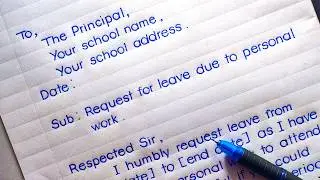 To,
The Principal,
Your school name,
Your school address.
Date:
Sub: Request for leave due to personal
work.
Respected Sir,
I humbly request leave from
date] to [end date] as I have
personal to attend
if could
period